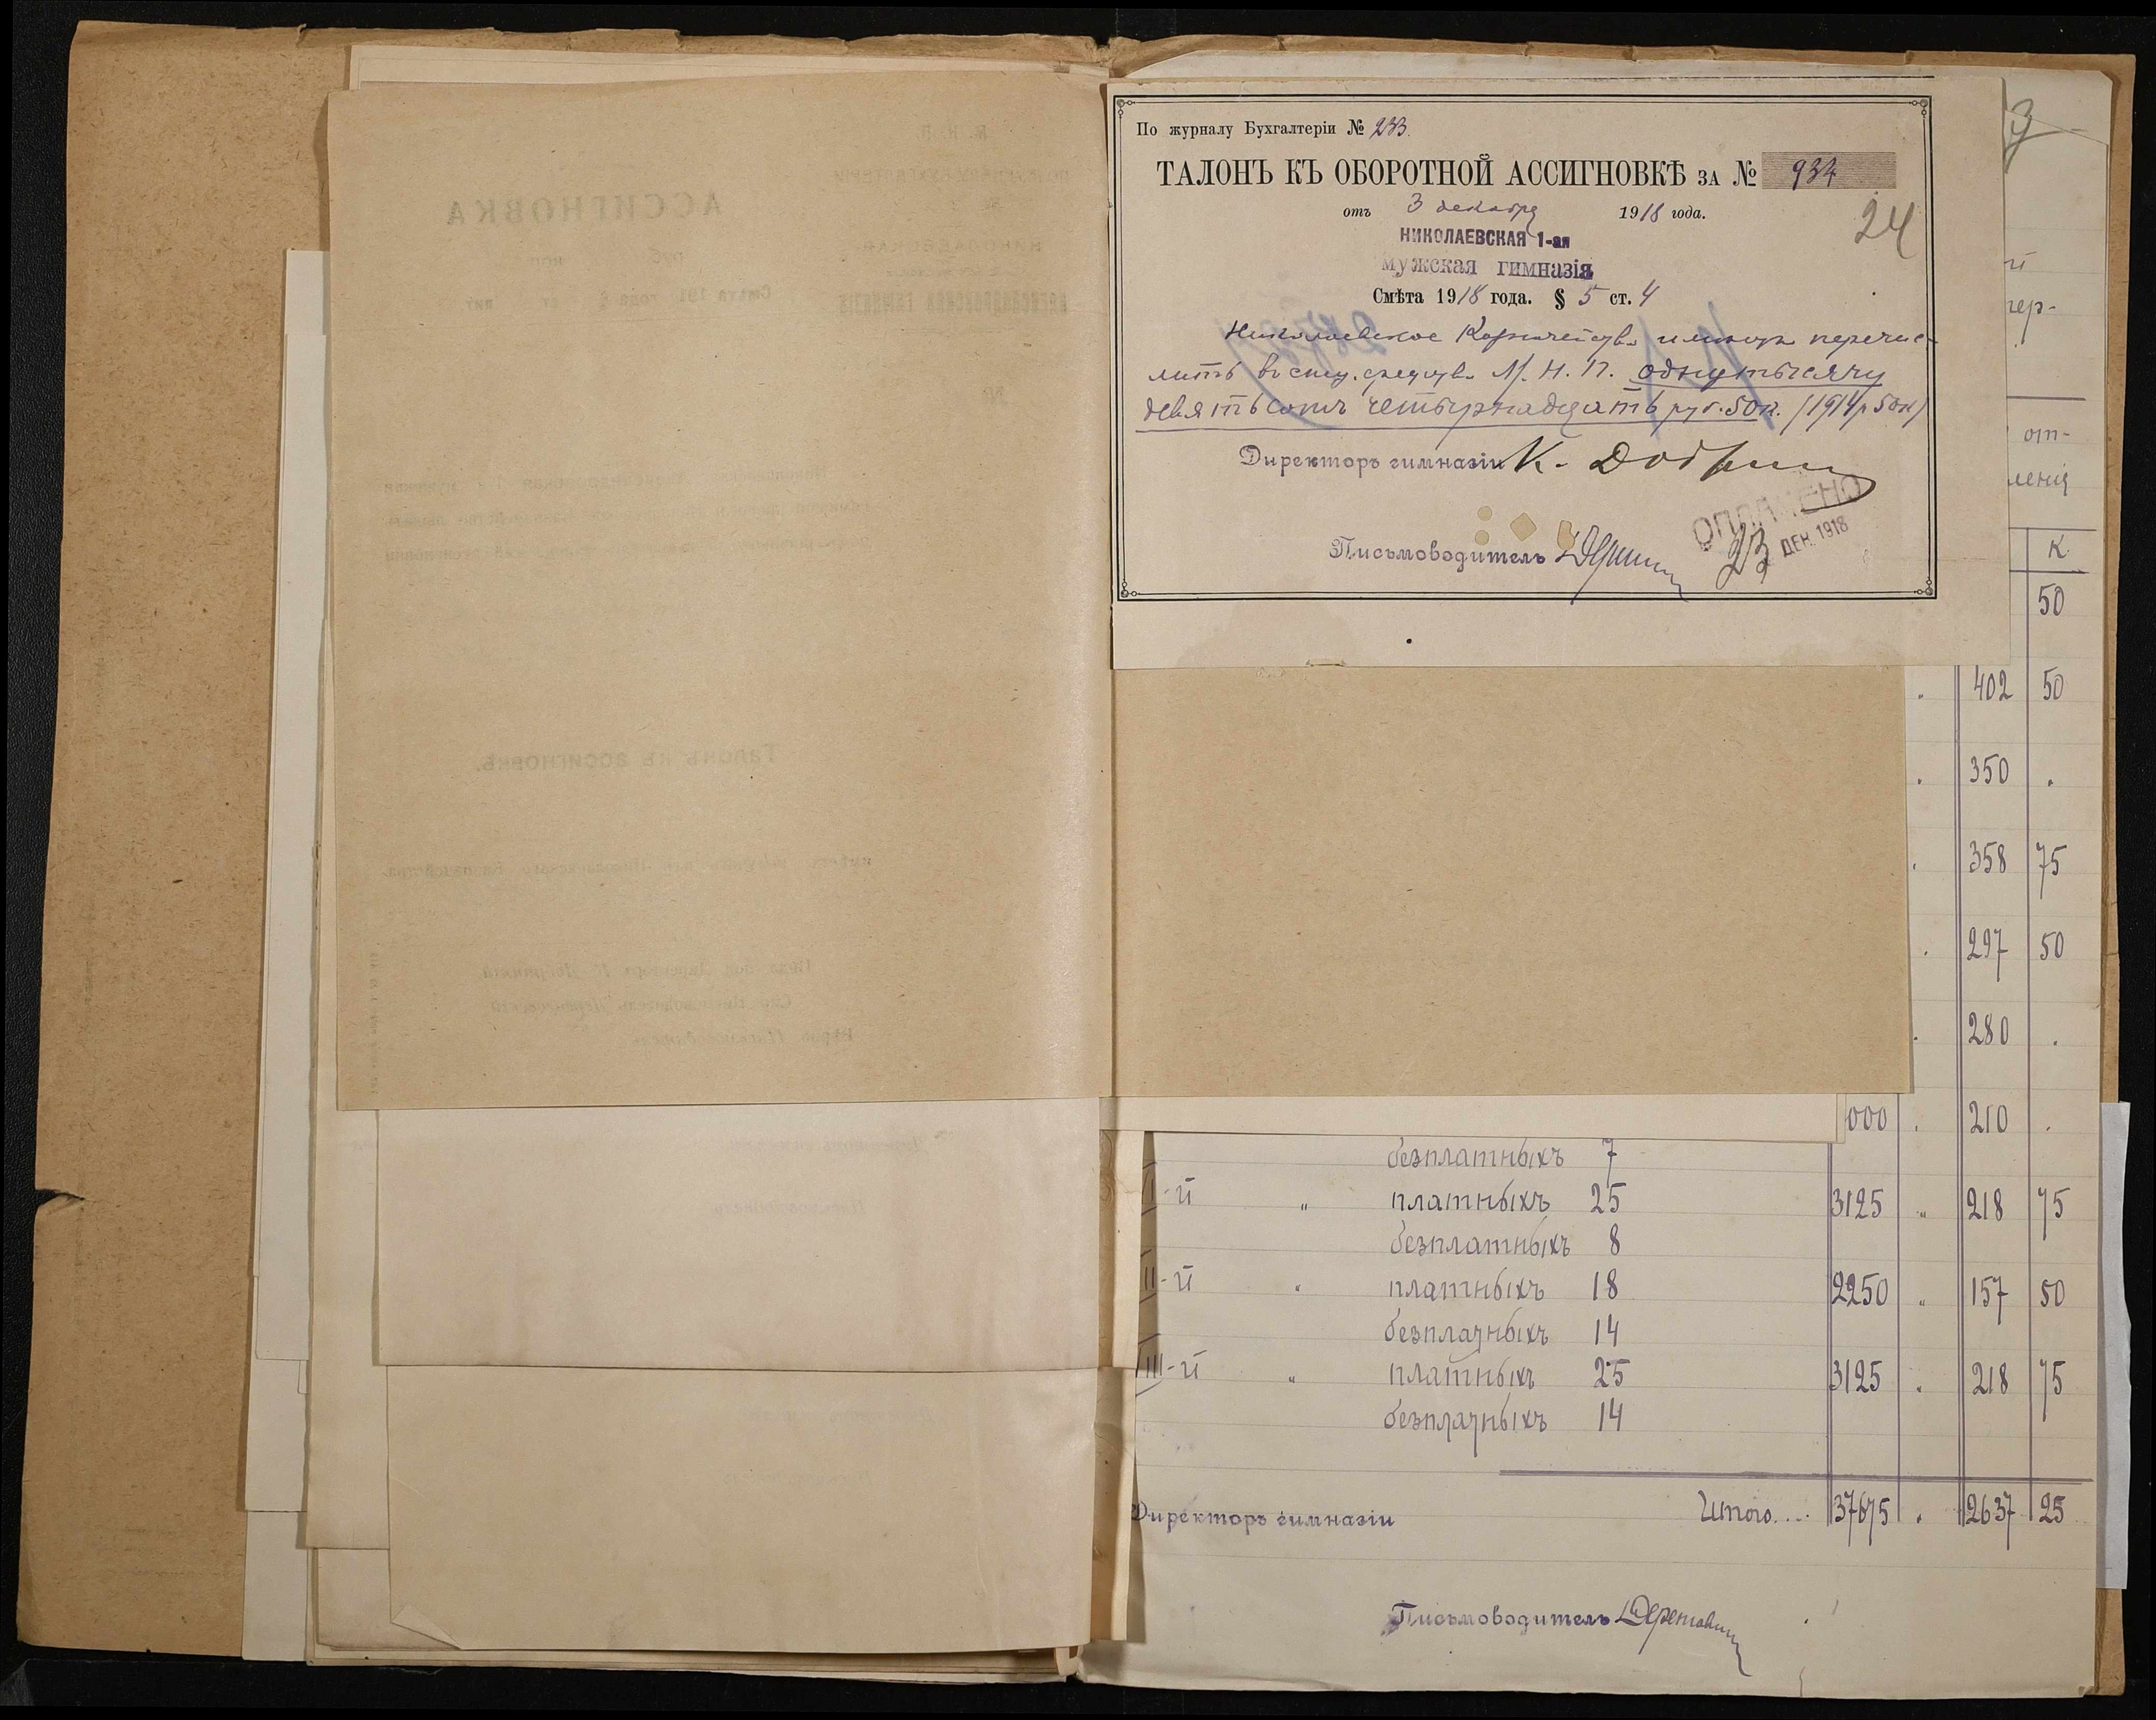 По журналу Бухгалтеріи № 233.
ТАЛОНЪ КЪ ОБОРОТНОЙ АССИГНОВКѢ ЗА № 934
отъ 3 декабря 1918 года.
24
НИКОЛАЕВСКАЯ 1-ая
мужская гимназія
Смѣта 1918 года. § 5 ст. 4
Николаевское Казначейство имѣетъ перечис-
лить въ спец. средства М. Н. П. одну тысячу
девятьсотъ четырнадцать руб. 50 к. (1914 р 50 к)
Директоръ гимназіи К.
ОПЛАЧЕНО
23 ДЕК 1918
Письмоводитель
3
й
пер-
от-
ленія
К
50
402 50
350 .
358 75
297 50
280 .
000 . 210 .
безплатныхъ 7
I-й " платныхъ 25 3125 " 218 75
безплатныхъ 8
II-й " платныхъ 18 2250 " 157 50
безплатныхъ 14
III-й " платныхъ 25 3125 . 218 75
безплатныхъ 14
Директоръ гимназіи Итого.... 37675 . 2637 25
Письмоводитель
АССИГНОВКА
Талонъ къ ассигновкѣ.